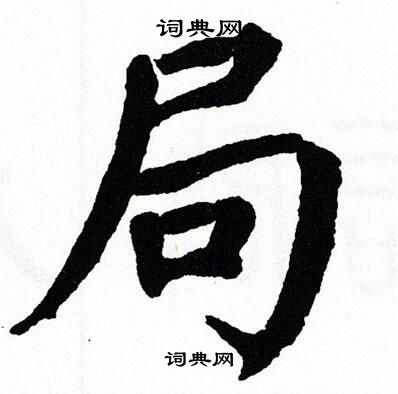 词典网
局
词典网